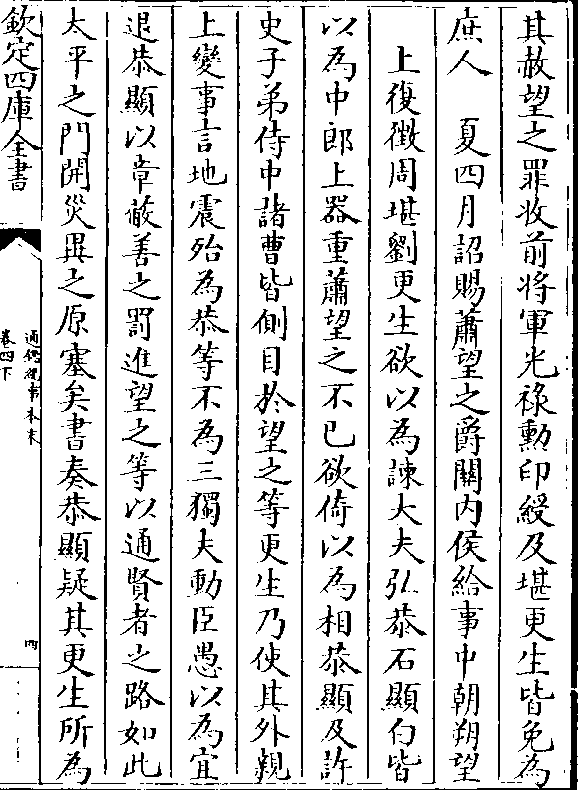 其赦望之罪收前将軍光祿勳印綬及堪更生皆免為
庶人　夏四月詔賜蕭望之爵關内侯給事中朝朔望
上復徵周堪劉更生欲以為諫大夫弘恭石顯白皆
以為中郎上器重蕭望之不已欲倚以為相恭顯及許
史子弟侍中諸曹皆側目於望之等更生乃使其外親
上變事言地震殆為恭等不為三獨夫動臣愚以為宜
退恭顯以章蔽善之罰進望之等以通賢者之路如此
太平之門開災異之原塞矣書奏恭顯疑其更生所為
欽定四庫全書
通鑑紀事本末
卷四下
四